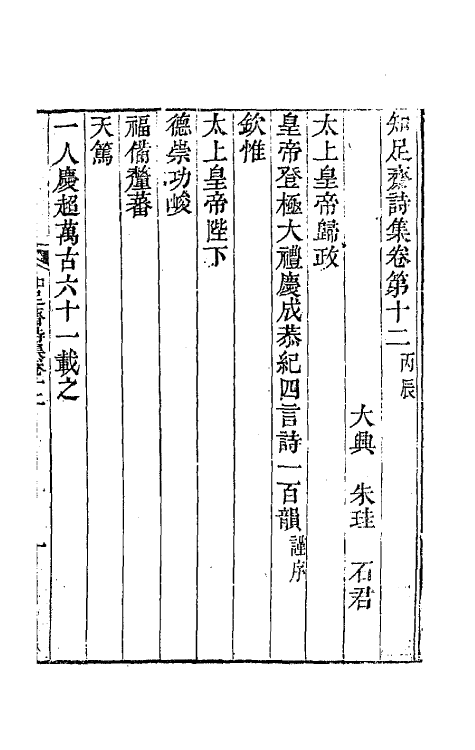 知足齋詩集卷第十二 丙辰
大興 朱珪 石君
太上皇帝歸政
皇帝登極大禮慶成恭紀四言詩一百韻 謹序
欽惟
太上皇帝陛下
德崇功峻
福備釐蕃
天篤
一人慶超萬古六十一載之